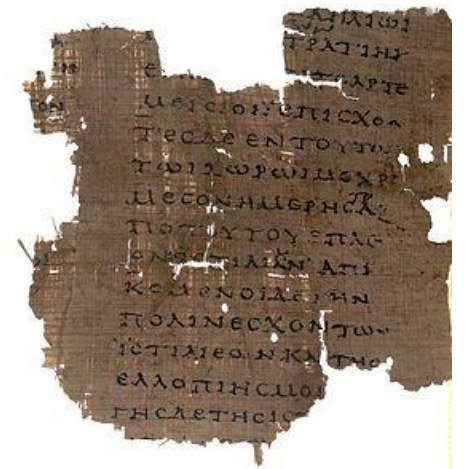 ΗΛΙΩΙ
ΤΡΑΤΙΗ
ΤΟΑΡΤΕ
ΜΕΙCΙΟΝΕΠΙCΧΟΝ
ΤΕCΔΕΕΝΤΟΥΤΩ
ΤΩΙΧΩΡΩΙΜΕΧΡΙ
ΜΕCΟΝΗΜΕΡΗCΑ
ΠΟΤΟΥΤΟΥΕΠΛΕ
ΟΝΕCΙCΤΙΑΙΗΝΑΠΙ
ΚΟΜΕΝΟΙΔΕΤΗΝ
ΠΟΛΙΝΕCΧΟΝΤΩΝ
ΙCΤΙΑΙΕΩΝΚΑΙΤΗC
ΕΛΛΟΠΙΗCΜΟΙ
ΓΗCΔΕΤΗCΙC